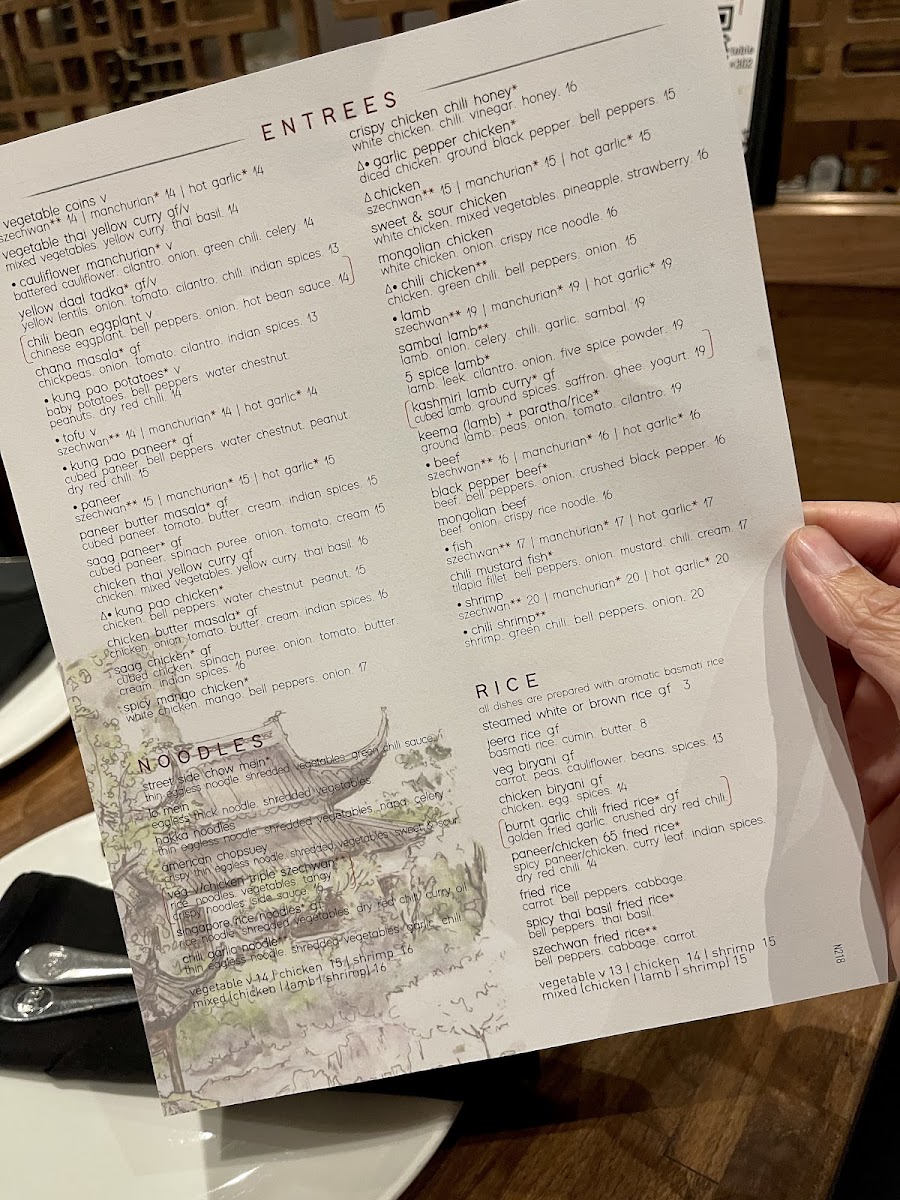 ENTREES
vegetable coins v
szechwan** 14 | manchurian* 14 | hot garlic* 14
vegetable thai yellow curry gf/v
mixed vegetables. yellow curry. thai basil. 14
• cauliflower manchurian* v
battered cauliflower. cilantro. onion. green chili. celery 14
yellow daal tadka* gf/v
yellow lentils. onion. tomato. cilantro. chili. indian spices. 13
chili bean eggplant v
chinese eggplant. bell peppers. onion. hot bean sauce. 14
chana masala* gf
chickpeas. onion. tomato. cilantro. indian spices. 13
• kung pao potatoes* v
baby potatoes. bell peppers. water chestnut.
peanuts. dry red chili. 14
• tofu v
szechwan** 14 | manchurian* 14 | hot garlic* 14
• kung pao paneer* gf
cubed paneer. bell peppers. water chestnut. peanut.
dry red chili 15
• paneer
szechwan** 15 | manchurian* 15 | hot garlic* 15
paneer butter masala* gf
cubed paneer. tomato. butter. cream. indian spices. 15
saag paneer* gf
cubed paneer. spinach puree. onion. tomato. cream 15
chicken thai yellow curry gf
chicken. mixed vegetables. yellow curry. thai basil. 16
∆• kung pao chicken*
chicken. bell peppers. water chestnut. peanut. 15
chicken butter masala* gf
chicken. onion. tomato. butter. cream. indian spices. 16
saag chicken* gf
cubed chicken. spinach puree. onion. tomato. butter.
cream. indian spices. 16
spicy mango chicken*
white chicken. mango. bell peppers. onion. 17
crispy chicken chili honey*
white chicken. chili. vinegar. honey. 16
∆• garlic pepper chicken*
diced chicken. ground black pepper. bell peppers. 15
∆ chicken
szechwan** 15 | manchurian* 15 | hot garlic* 15
sweet & sour chicken
white chicken. mixed vegetables. pineapple. strawberry. 16
mongolian chicken
white chicken. onion. crispy rice noodle. 16
∆• chili chicken**
chicken. green chili. bell peppers. onion. 15
• lamb
szechwan** 19 | manchurian* 19 | hot garlic* 19
sambal lamb**
lamb. onion. celery. chili. garlic. sambal. 19
5 spice lamb*
lamb. leek. cilantro. onion. five spice powder. 19
kashmiri lamb curry* gf
cubed lamb. ground spices. saffron. ghee. yogurt. 19
keema (lamb) + paratha/rice*
ground lamb. peas. onion. tomato. cilantro. 19
• beef
szechwan** 16 | manchurian* 16 | hot garlic* 16
black pepper beef*
beef. bell peppers. onion. crushed black pepper. 16
mongolian beef
beef. onion. crispy rice noodle. 16
• fish
szechwan** 17 | manchurian* 17 | hot garlic* 17
chili mustard fish*
tilapia fillet. bell peppers. onion. mustard. chili. cream. 17
• shrimp
szechwan** 20 | manchurian* 20 | hot garlic* 20
• chili shrimp**
shrimp. green chili. bell peppers. onion. 20
NOODLES
street side chow mein*
thin eggless noodle. shredded vegetables. green chili sauce.
lo mein
eggless thick noodle. shredded vegetables.
hakka noodles
thin eggless noodle. shredded vegetables. napa. celery
american chopsuey
crispy thin eggless noodle. shredded vegetables. sweet & sour.
veg v/chicken triple szechwan
rice. noodles. vegetables. tangy
crispy noodles. side sauce. 16
singapore rice noodles* gf
rice noodle. shredded vegetables. dry red chili. curry oil
chili garlic noodle*
thin eggless noodle. shredded vegetables. garlic. chili
vegetable v 14 | chicken 15 | shrimp 16
mixed (chicken | lamb | shrimp) 16
RICE
all dishes are prepared with aromatic basmati rice
steamed white or brown rice gf 3
jeera rice gf
basmati rice. cumin. butter. 8
veg biryani gf
carrot. peas. cauliflower. beans. spices. 13
chicken biryani gf
chicken. egg. spices. 14
burnt garlic chili fried rice* gf
golden fried garlic. crushed dry red chili.
paneer/chicken 65 fried rice*
spicy paneer/chicken. curry leaf. indian spices.
dry red chili 14
fried rice
carrot. bell peppers. cabbage.
spicy thai basil fried rice*
bell peppers. thai basil.
szechwan fried rice**
bell peppers. cabbage. carrot.
vegetable v 13 | chicken 14 | shrimp 15
mixed (chicken | lamb | shrimp) 15
N218